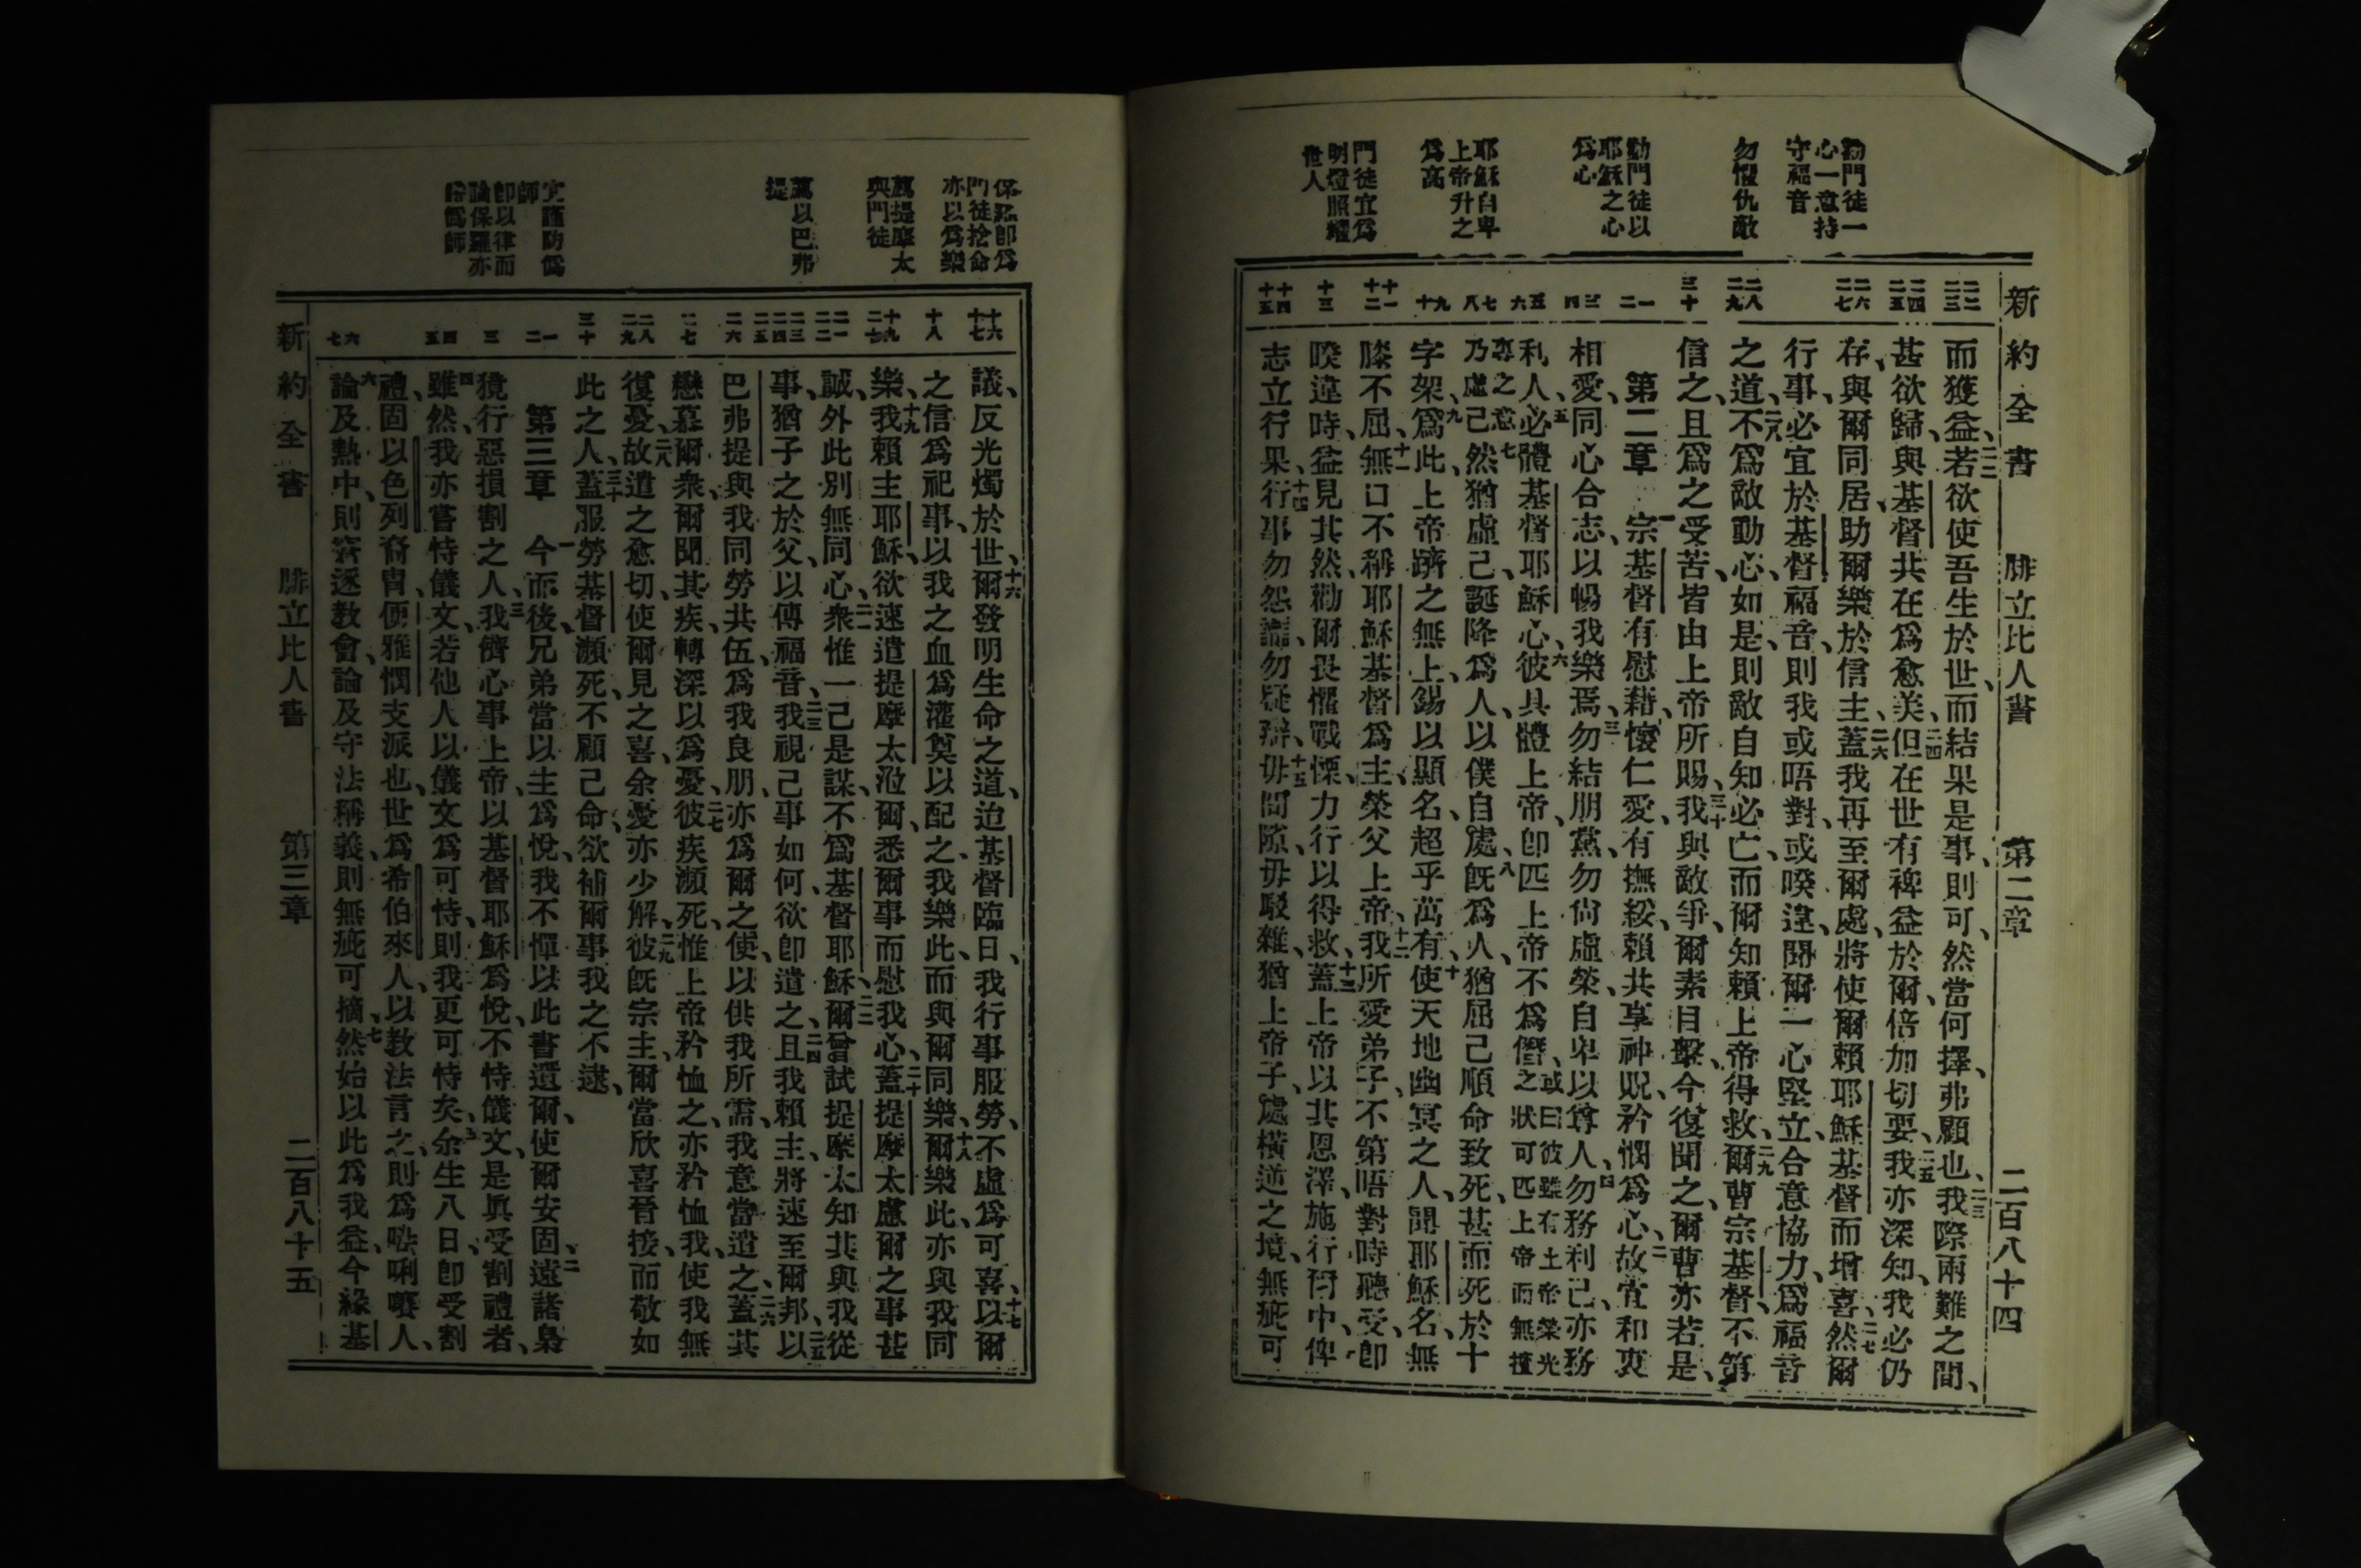 新約全書 腓立比人書 第二章 二百八十四
勸門徒一
心一意持
守福音
勿懼仇敵
勸門徒以
耶穌之心
爲心
耶穌自卑
上帝升之
爲高
門徒宜爲
明燈照耀
世人
二二 二三
二四 二五
二六 二七
二八 二九
三十
一 二
三 四
五 六
七 八
九 十
十一 十二
十三
十四 十五
而獲益、二二若欲使吾生於世、而結果是事、則可、然當何擇、弗顧也、二三我際兩難之間、
甚欲歸、與基督共在爲愈美、二四但在世有裨益於爾、倍加切要、二五我亦深知、我必仍
存、與爾同居、助爾樂於信主、二六蓋我再至爾處、將使爾賴耶穌基督而增喜、二七然爾
行事、必宜於基督福音、則我或晤對、或暌違、聞爾一心堅立、合意協力、爲福音
之道、二八不爲敵動心、如是、則敵自知必亡、而爾知賴上帝得救、二九爾曹宗基督、不第
信之、且爲之受苦、皆由上帝所賜、三十我與敵爭、爾素目擊、今復聞之、爾曹亦若是、
第二章 一宗基督有慰藉、懷仁愛、有撫綏、賴共享神貺、矜憫爲心、二故宜和衷
相愛、同心合志、以暢我樂焉、三勿結朋黨、勿尙虛榮、自卑以尊人、四勿務利己、亦務
利人、五必體基督耶穌心、六彼具體上帝、卽匹上帝不爲僭、或曰彼雖有上帝榮光之狀可匹上帝而無擅
專之意七乃虛己、然猶虛己、誕降爲人、以僕自處、八旣爲人、猶屈己順命致死、甚而死於十
字架、九爲此、上帝躋之無上、錫以顯名、超乎萬有、十使天地幽冥之人、聞耶穌名、無
膝不屈、十一無口不稱耶穌基督爲主、榮父上帝、十二我所愛弟子、不第晤對時聽受、卽
暌違時、益見其然、勸爾畏懼戰慄、力行以得救、十三蓋上帝以其恩澤、施行爾中、俾
志立行果、十四行事勿怨讟、勿疑辯、十五毋間隙、毋駁雜、猶上帝子、處橫逆之境、無疵可
保羅卽爲
門徒捨命
亦以爲樂
薦提摩太
與門徒
薦以巴弗
提
宜謹防僞
師
卽以律而
論保羅亦
十六 十七
十八
十九 二十
二一 二二
二三 二四 二五
二六
二七
二八 二九
三十
一 二
三
四 五
六 七
議、反光燭於世、十六爾發明生命之道、迨基督臨日、我行事服勞、不虛爲可喜、十七以爾
之信爲祀事、以我之血爲灌奠以配之、我樂此、而與爾同樂、十八爾樂此、亦與我同
樂、十九我賴主耶穌、欲速遣提摩太涖爾、悉爾事而慰我心、二十蓋提摩太慮爾之事甚
誠、外此別無同心、二一衆惟一己是謀、不爲基督耶穌、二二爾曾試提摩太、知其與我從
事、猶子之於父、以傳福音、二三我視己事如何、欲卽遣之、二四且我賴主、將速至爾邦、二五以
巴弗提與我同勞共伍、爲我良朋、亦爲爾之使、以供我所需、我意當遣之、二六蓋其
戀慕爾衆、爾聞其疾、轉深以爲憂、二七彼疾瀕死、惟上帝矜恤之、亦矜恤我、使我無
復憂、二八故遣之愈切、使爾見之喜、余憂亦少解、二九彼旣宗主、爾當欣喜晉接、而敬如
此之人、三十蓋服勞基督瀕死、不顧己命、欲補爾事我之不逮、
第三章 一今而後、兄弟當以主爲悅、我不憚以此書遺爾、使爾安固、二遠諸梟
獍行惡損割之人、三我儕心事上帝、以基督耶穌爲悅、不恃儀文、是眞受割禮者、
四雖然、我亦嘗恃儀文、若他人以儀文爲可恃、則我更可恃矣、五余生八日、卽受割
禮、固以色列裔胄、便雅憫支派也、世爲希伯來人、以敎法言之、則爲𠵽唎㘔人、
六論及熱中、則窘逐敎會、論及守法稱義、則無疵可摘、七然始以此爲我益、今緣基
新約全書 腓立比人書 第三章 二百八十五